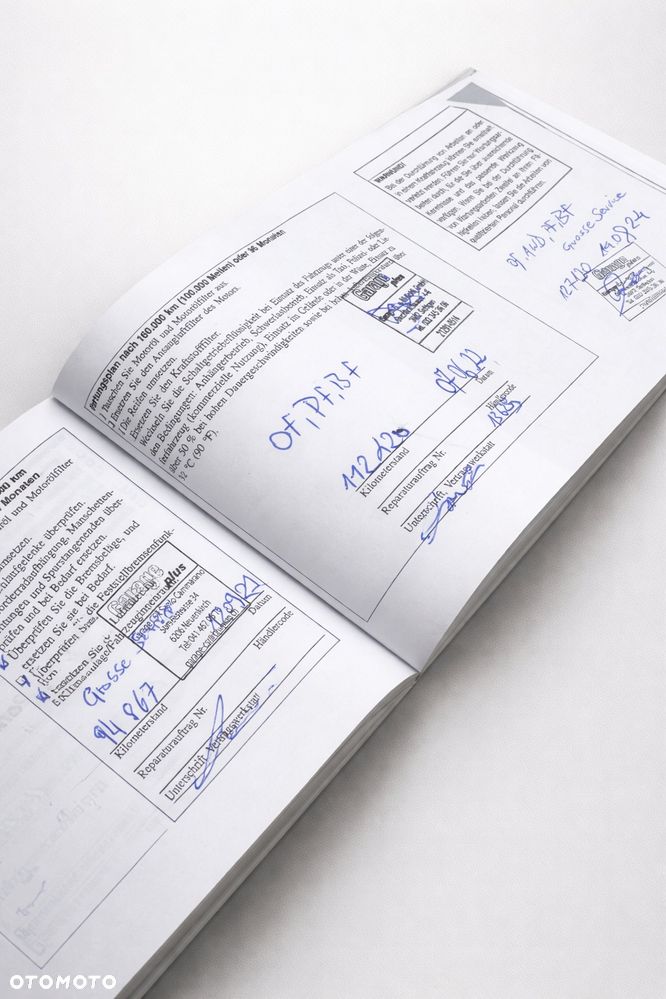 00 km
Monaten
öl und Motorölfilter
umsetzen.
überprüfen.
orderradaufhängung, Manschetten-
htungen und Spurstangenenden über-
prüfen und bei Bedarf ersetzen.
Überprüfen Sie die Bremsbeläge, und
ersetzen Sie sie bei Bedarf.
Überprüfen die Feststellbremsenfunk-
Garage
plus
Sempachstrasse 34
6206 Neuenkirch
Grosse Service
94 867
12/09/21
Kilometerstand
Datum
Reparaturauftrag Nr.
Händlercode
Unterschrift, Vertragswerkstatt
artungsplan nach 160.000 km (100.000 Meilen) oder 96 Monaten
Tauschen Sie Motoröl und Motorölfilter aus.
Ersetzen Sie den Ansaugluftfilter des Motors.
Die Reifen umsetzen.
Ersetzen Sie den Kraftstofffilter.
Wechseln Sie die Schaltgetriebeflüssigkeit bei Einsatz des Fahrzeugs unter einer der folgen-
den Bedingungen: Anhängerbetrieb, Schwerlastbetrieb, Einsatz als Taxi, Polizei- oder Lie-
ferfahrzeug (kommerzielle Nutzung), Einsatz im Gelände oder in der Wüste, Einsatz zu
über 50 % bei hohen Dauergeschwindigkeiten sowie bei über
32 °C (90 °F).
Garage
plus
OF, PF, BF
112 120
Kilometerstand
Datum
Reparaturauftrag Nr.
Händlercode
Unterschrift, Vertragswerkstatt
WARNUNG!
Bei der Durchführung von Arbeiten an oder
in einem Kraftfahrzeug können Sie ernsthaft
verletzt werden. Führen Sie nur Wartungsar-
beiten durch, für die Sie über ausreichende
Kenntnisse und das passende Werkzeug
verfügen. Wenn Sie bei der Durchführung
von Wartungsarbeiten Zweifel an Ihren Fä-
higkeiten haben, lassen Sie die Arbeiten von
qualifiziertem Personal durchführen.
Grosse Service
Garage
plus
OTOMOTO